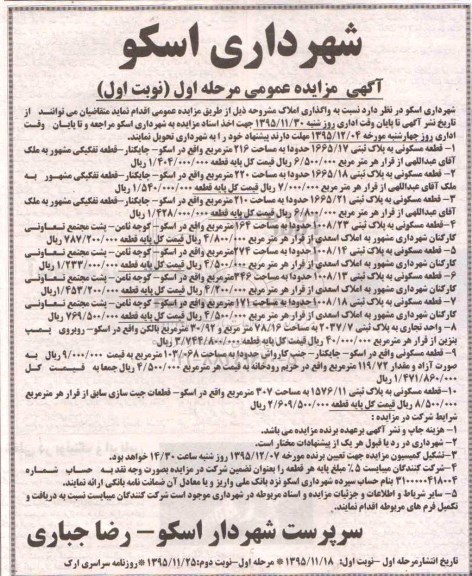 شهرداری اسکو
آگهی مزایده عمومی مرحله اول (نوبت اول)
شهرداری اسکو در نظر دارد نسبت به واگذاری املاک مشروحه ذیل از طریق مزایده عمومی اقدام نماید متقاضیان می توانند از
تاریخ نشر آگهی تا پایان وقت اداری روز شنبه ۱۳۹۵/۱۱/۳۰ جهت اخذ اسناد مزایده به شهرداری اسکو مراجعه و تا پایان وقت
اداری روز چهارشنبه مورخه ۱۳۹۵/۱۲/۰۴ مهلت دارند پیشنهاد خود را به شهرداری تحویل نمایند.
۱- قطعه مسکونی به پلاک ثبتی ۱۶۶۵/۱۷ حدودا به مساحت ۲۱۶ مترمربع واقع در اسکو- چاپکنار- قطعه تفکیکی مشهور به ملک
آقای عبداللهی از قرار هر متر مربع ۶/۵۰۰/۰۰۰ ریال قیمت کل پایه قطعه ۱/۴۰۴/۰۰۰/۰۰۰ ریال
۲- قطعه مسکونی به پلاک ثبتی ۱۶۶۵/۱۸ حدودا به مساحت ۲۲۰ مترمربع واقع در اسکو- چاپکنار- قطعه تفکیکی مشهور به
ملک آقای عبداللهی از قرار هر متر مربع ۷/۰۰۰/۰۰۰ ریال قیمت کل پایه قطعه ۱/۵۴۰/۰۰۰/۰۰۰ ریال
۳- قطعه مسکونی به پلاک ثبتی ۱۶۶۵/۲۱ حدودا به مساحت ۲۱۰ مترمربع واقع در اسکو- چاپکنار- قطعه تفکیکی مشهور به ملک
آقای عبداللهی از قرار هر متر مربع ۶/۸۰۰/۰۰۰ ریال قیمت کل پایه قطعه ۱/۴۲۸/۰۰۰/۰۰۰ ریال
۴- قطعه مسکونی به پلاک ثبتی ۱۰۰۸/۲۳ حدودا به مساحت ۱۶۴ مترمربع واقع در اسکو- کوچه ثامن- پشت مجتمع تعاونی
کارکنان شهرداری مشهور به املاک اسعدی از قرار هر متر مربع ۴/۸۰۰/۰۰۰ ریال قیمت کل پایه قطعه ۷۸۷/۲۰۰/۰۰۰ ریال
۵- قطعه مسکونی به پلاک ثبتی ۱۰۰۸/۱۴ حدودا به مساحت ۲۷۴ مترمربع واقع در اسکو- کوچه ثامن- پشت مجتمع تعاونی
کارکنان شهرداری مشهور به املاک اسعدی از قرار هر متر مربع ۴/۵۰۰/۰۰۰ ریال قیمت کل پایه قطعه ۱/۲۳۳/۰۰۰/۰۰۰ ریال
۶- قطعه مسکونی به پلاک ثبتی ۱۰۰۸/۱۳ حدودا به مساحت ۳۴۶ مترمربع واقع در اسکو- کوچه ثامن- پشت مجتمع تعاونی
کارکنان شهرداری مشهور به املاک اسعدی از قرار هر متر مربع ۴/۲۰۰/۰۰۰ ریال قیمت کل پایه قطعه ۱/۴۵۳/۲۰۰/۰۰۰ ریال
۷- قطعه مسکونی به پلاک ثبتی ۱۰۰۸/۱۸ حدودا به مساحت ۱۷۱ مترمربع واقع در اسکو- کوچه ثامن- پشت مجتمع تعاونی
کارکنان شهرداری مشهور به املاک اسعدی از قرار هر متر مربع ۴/۵۰۰/۰۰۰ ریال قیمت کل پایه قطعه ۷۶۹/۵۰۰/۰۰۰ ریال
۸- واحد تجاری به پلاک ثبتی ۲۰۳۷/۷ به مساحت ۷۸/۱۶ متر مربع و ۳۰/۹۲ مترمربع بالکن واقع در اسکو- روبروی پمپ
بنزین از قرار هر متر مربع ۴۰/۰۰۰/۰۰۰ ریال قیمت کل پایه قطعه ۳/۷۴۴/۸۰۰/۰۰۰ ریال
۹- قطعه مسکونی واقع در اسکو- چاپکنار- جنب کارواش حدودا به مساحت ۱۰۳/۰۶۸ مترمربع به قیمت ۹/۰۰۰/۰۰۰ ریال به
صورت آزاد و مقدار ۱۱۹/۷۲ مترمربع واقع در حریم رودخانه به قیمت هر مترمربع ۴/۵۰۰/۰۰۰ ریال جمعا به قیمت کل
۱/۴۷۱/۸۶۰/۰۰۰ ریال
۱۰- قطعه مسکونی به پلاک ثبتی ۱۵۷۶/۱۱ به مساحت ۳۰۷ مترمربع واقع در اسکو- قطعات جیت سازی سابق از قرار هر متر مربع
۸/۵۰۰/۰۰۰ ریال قیمت کل پایه قطعه ۲/۶۰۹/۵۰۰/۰۰۰ ریال
شرایط شرکت در مزایده :
۱- هزینه چاپ و نشر آگهی برعهده برنده مزایده می باشد.
۲- شهرداری در رد یا قبول هر یک از پیشنهادات مختار است.
۳- تشکیل کمیسیون مزایده جهت تعیین برنده مورخه ۱۳۹۵/۱۲/۰۷ روز شنبه ساعت ۱۴/۳۰ خواهد بود.
۴- شرکت کنندگان میبایست ۵٪ مبلغ پایه هر قطعه را بعنوان تضمین شرکت در مزایده بصورت وجه نقد به حساب شماره
۳۱۰۰۰۰۰۴۱۸۰۰۴ بنام حساب سپرده شهرداری اسکو نزد بانک ملی واریز و یا معادل آن ضمانت نامه بانکی ارائه نمایند.
۵- سایر شرایط و اطلاعات و جزئیات مزایده و اسناد مربوطه در شهرداری موجود است شرکت کنندگان میبایست نسبت به دریافت و
تکمیل فرم های مربوطه اقدام نمایند.
سرپرست شهردار اسکو- رضا جباری
تاریخ انتشار مرحله اول -نوبت اول: ۱۳۹۵/۱۱/۱۸ * مرحله اول-نوبت دوم: ۱۳۹۵/۱۱/۲۵ * روزنامه سراسری ارک